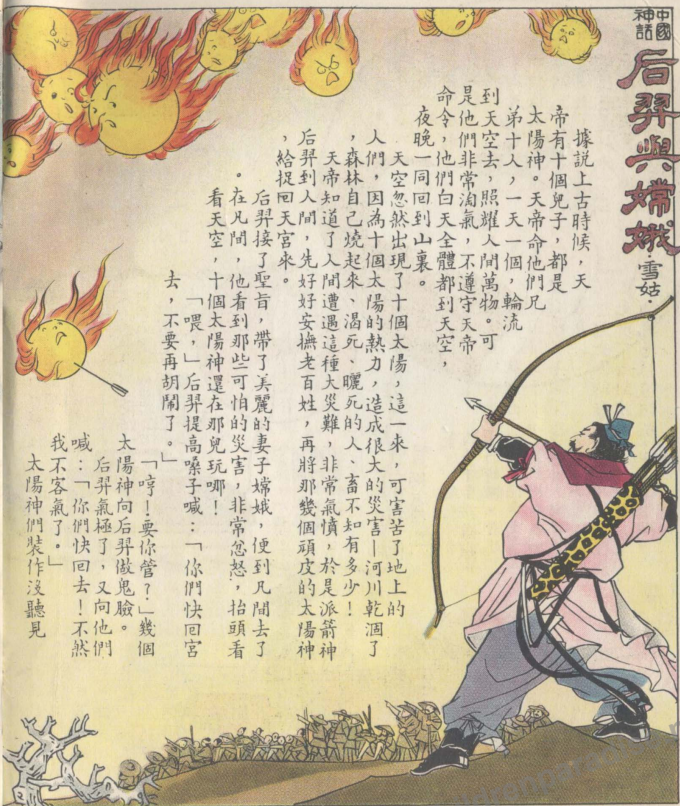 中國
神話
后羿與嫦娥
·雪姑·
據說上古時候，天
帝有十個兒子，都是
太陽神。天帝命他們兄
弟十人，一天一個，輪流
到天空去，照耀人間萬物。可
是他們非常淘氣，不遵守天帝
命令，他們白天全體都到天空，
夜晚一同回到山裏。
天空忽然出現了十個太陽，這一來，可害苦了地上的
人們，因為十個太陽的熱力，造成很大的災害—河川乾涸了
，森林自己燒起來、渴死、曬死的人、畜不知有多少！
天帝知道了人間遭遇這種大災難，非常氣憤，於是派箭神
后羿到人間，先好好安撫老百姓，再將那幾個頑皮的太陽神
，給捉回天宮來。
后羿接了聖旨，帶了美麗的妻子嫦娥，便到凡間去了
。在凡間，他看到那些可怕的災害，非常忿怒，抬頭看
看天空，十個太陽神還在那兒玩哪！
「喂，」后羿提高嗓子喊：「你們快回宮
去，不要再胡鬧了。」
「哼！要你管？」幾個
太陽神向后羿做鬼臉。
后羿氣極了，又向他們
喊：「你們快回去！不然
我不客氣了。」
太陽神們裝作沒聽見